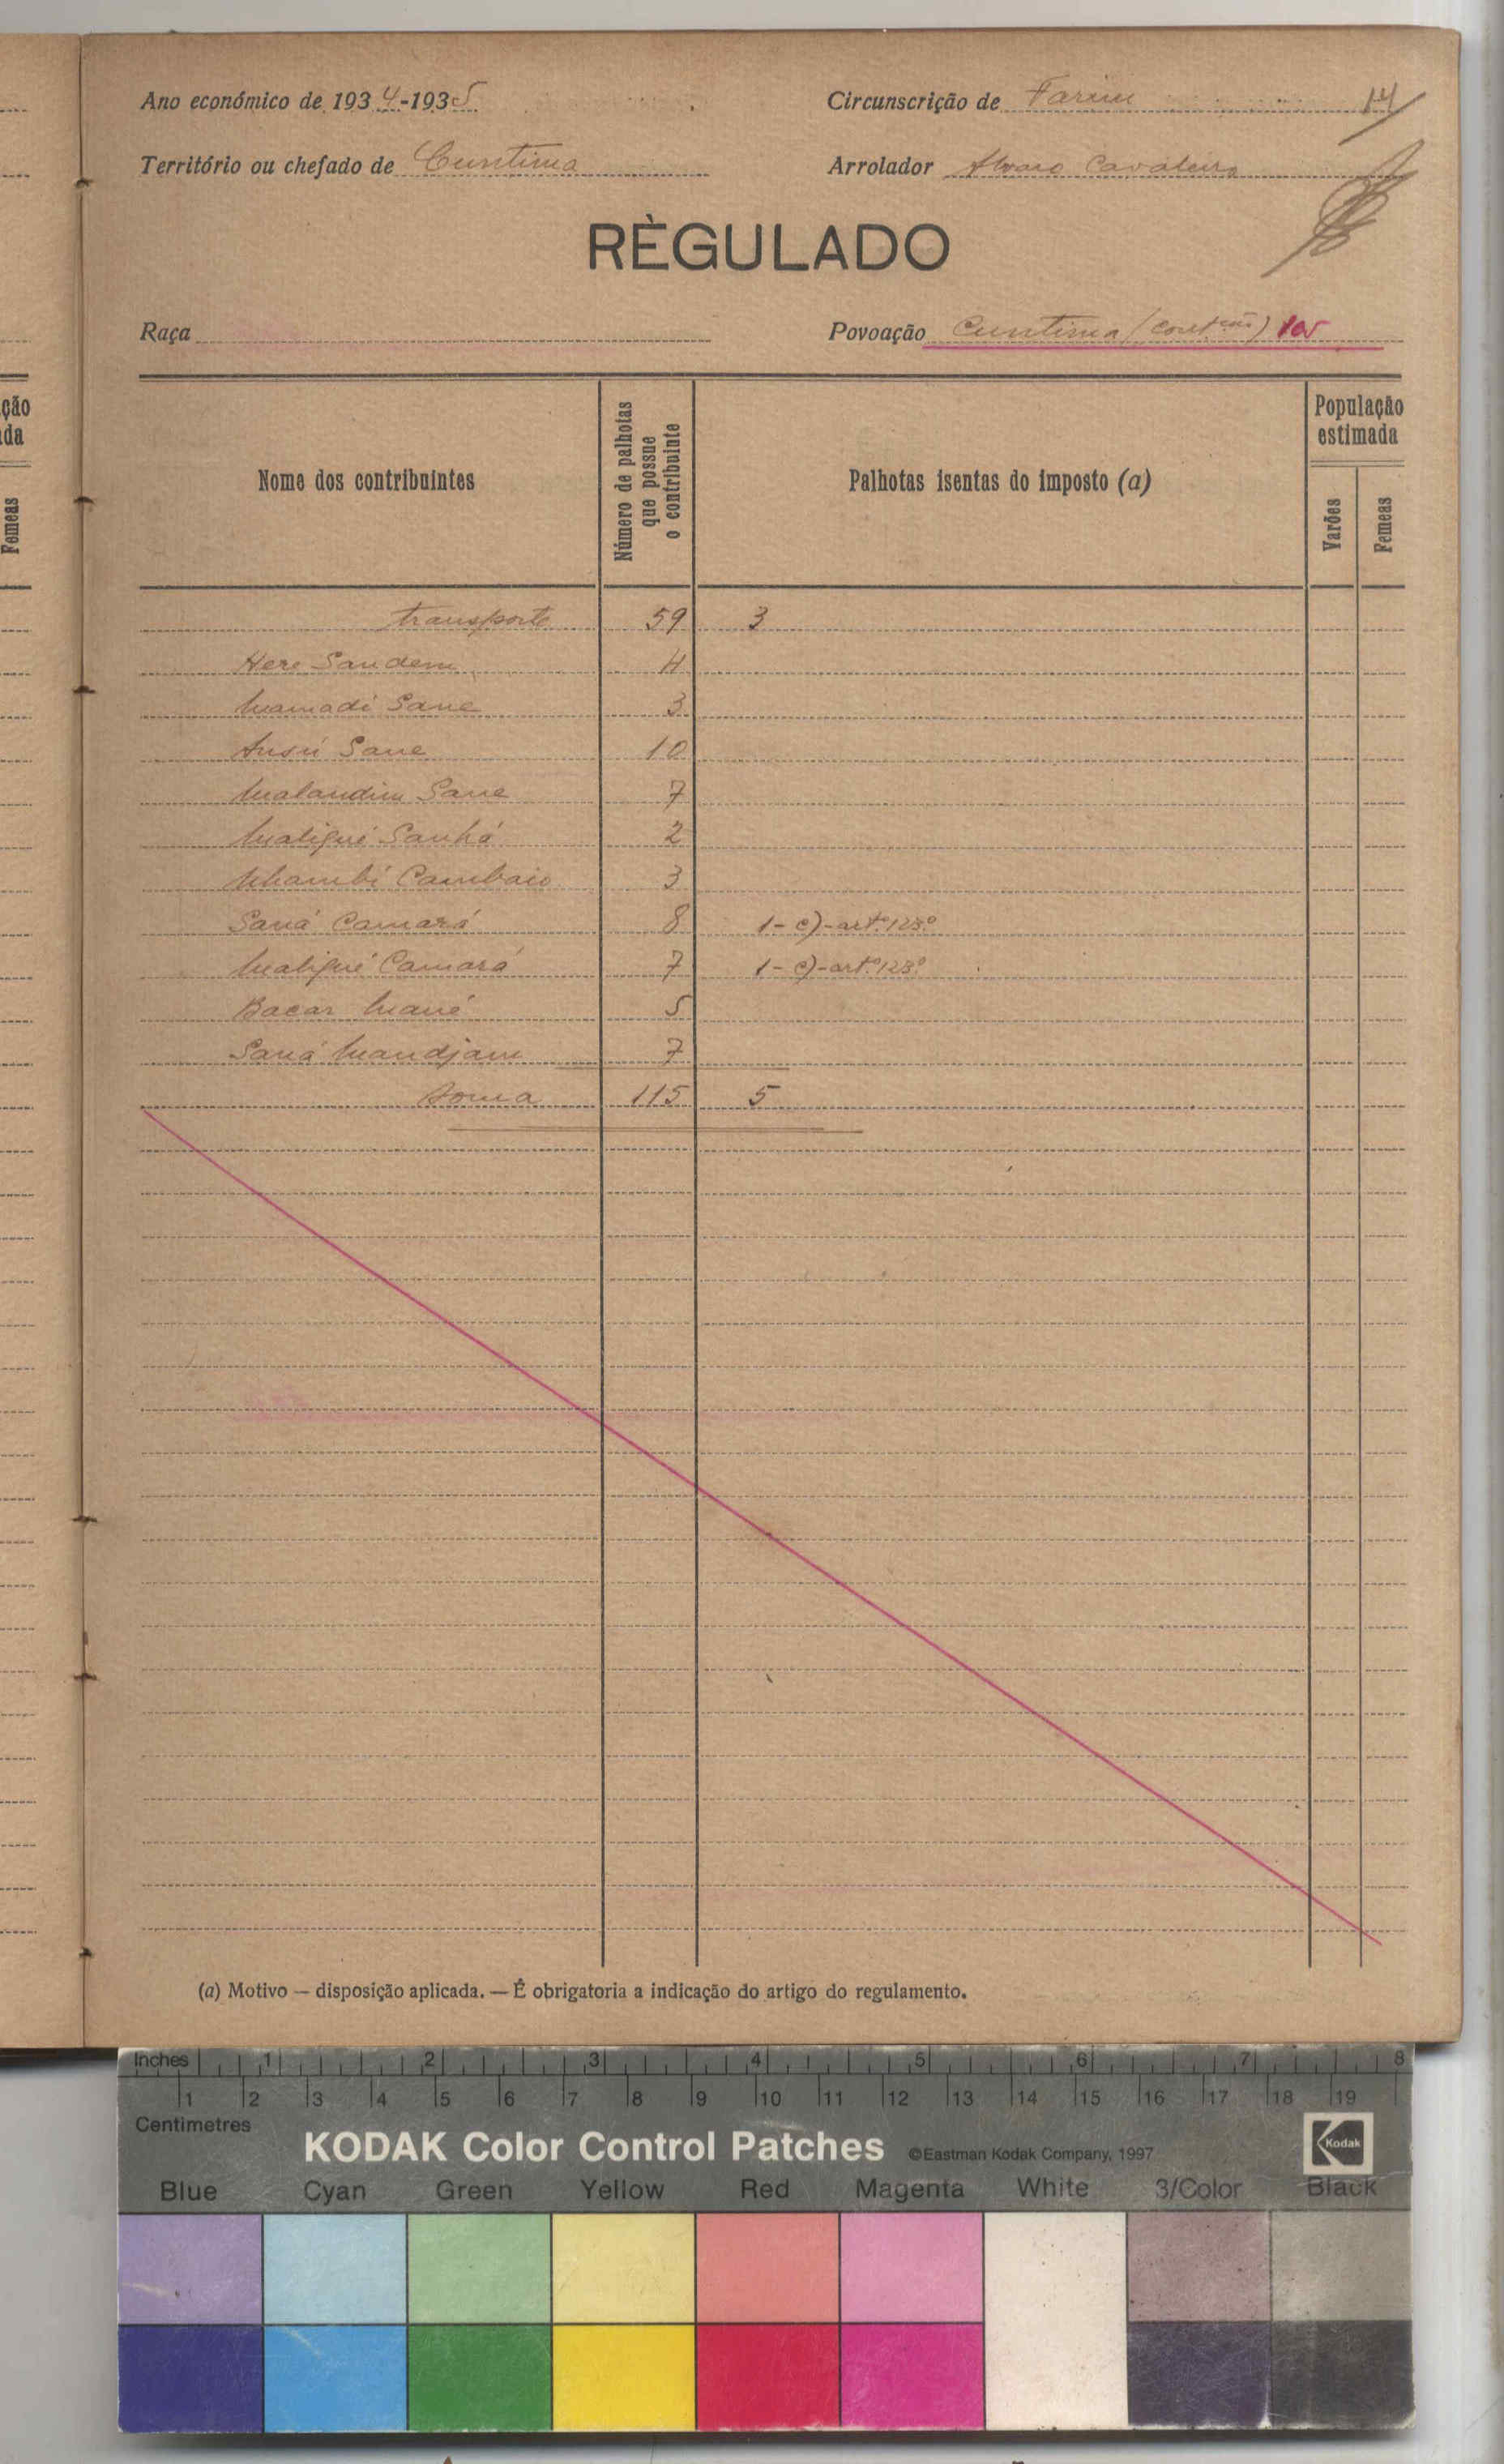 Ano económico de 1934-1935
Circunscrição de Farim 14
Território ou chefado de Cuntima
Arrolador Alvaro Cavaleiro
RÈGULADO
Raça
Povoação Cuntima (contção) 105
Nome dos contribuintes
Número de palhotas que possue o contribuinte
Palhotas isentas do imposto (a)
População estimada
Varões
Femeas
transporte 59 3
Here Sandem 4
Mamadi Sane 3
Ansú Sane 10
Malandim Sane 7
Maligué Sanhá 2
Nhambi Cambaio 3
Saná Camará 8 1-c)-artº.128º
Maligué Camará 7 1-c)-artº128º
Bacar Mané 5
Saná Mandjam 7
Soma 115 5
(a) Motivo — disposição aplicada. — É obrigatoria a indicação do artigo do regulamento.
ção
da
Femeas
Inches 1 2 3 4 5 6 7 8
1 2 3 4 5 6 7 8 9 10 11 12 13 14 15 16 17 18 19
Centimetres
KODAK Color Control Patches ©Eastman Kodak Company, 1997 Kodak
Blue Cyan Green Yellow Red Magenta White 3/Color Black